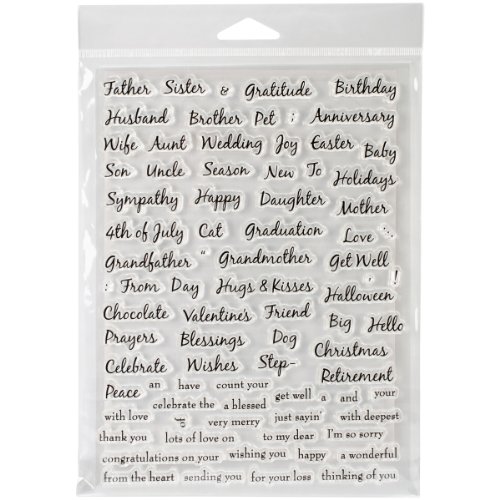 Father Sister & Gratitude Birthday
Husband Brother Pet ; Anniversary
Wife Aunt Wedding Joy Easter Baby
Son Uncle Season New To Holidays
Sympathy Happy Daughter Mother
4th of July Cat Graduation Love
Grandfather " Grandmother Get Well
: From Day Hugs & Kisses , !
Halloween
Chocolate Valentine's Friend Big Hello
Prayers Blessings Dog Christmas
Celebrate Wishes Step- Retirement
Peace an have count your
celebrate the a blessed get well a and your
with love very merry just sayin' with deepest
thank you lots of love on to my dear I'm so sorry
congratulations on your wishing you happy a wonderful
from the heart sending you for your loss thinking of you